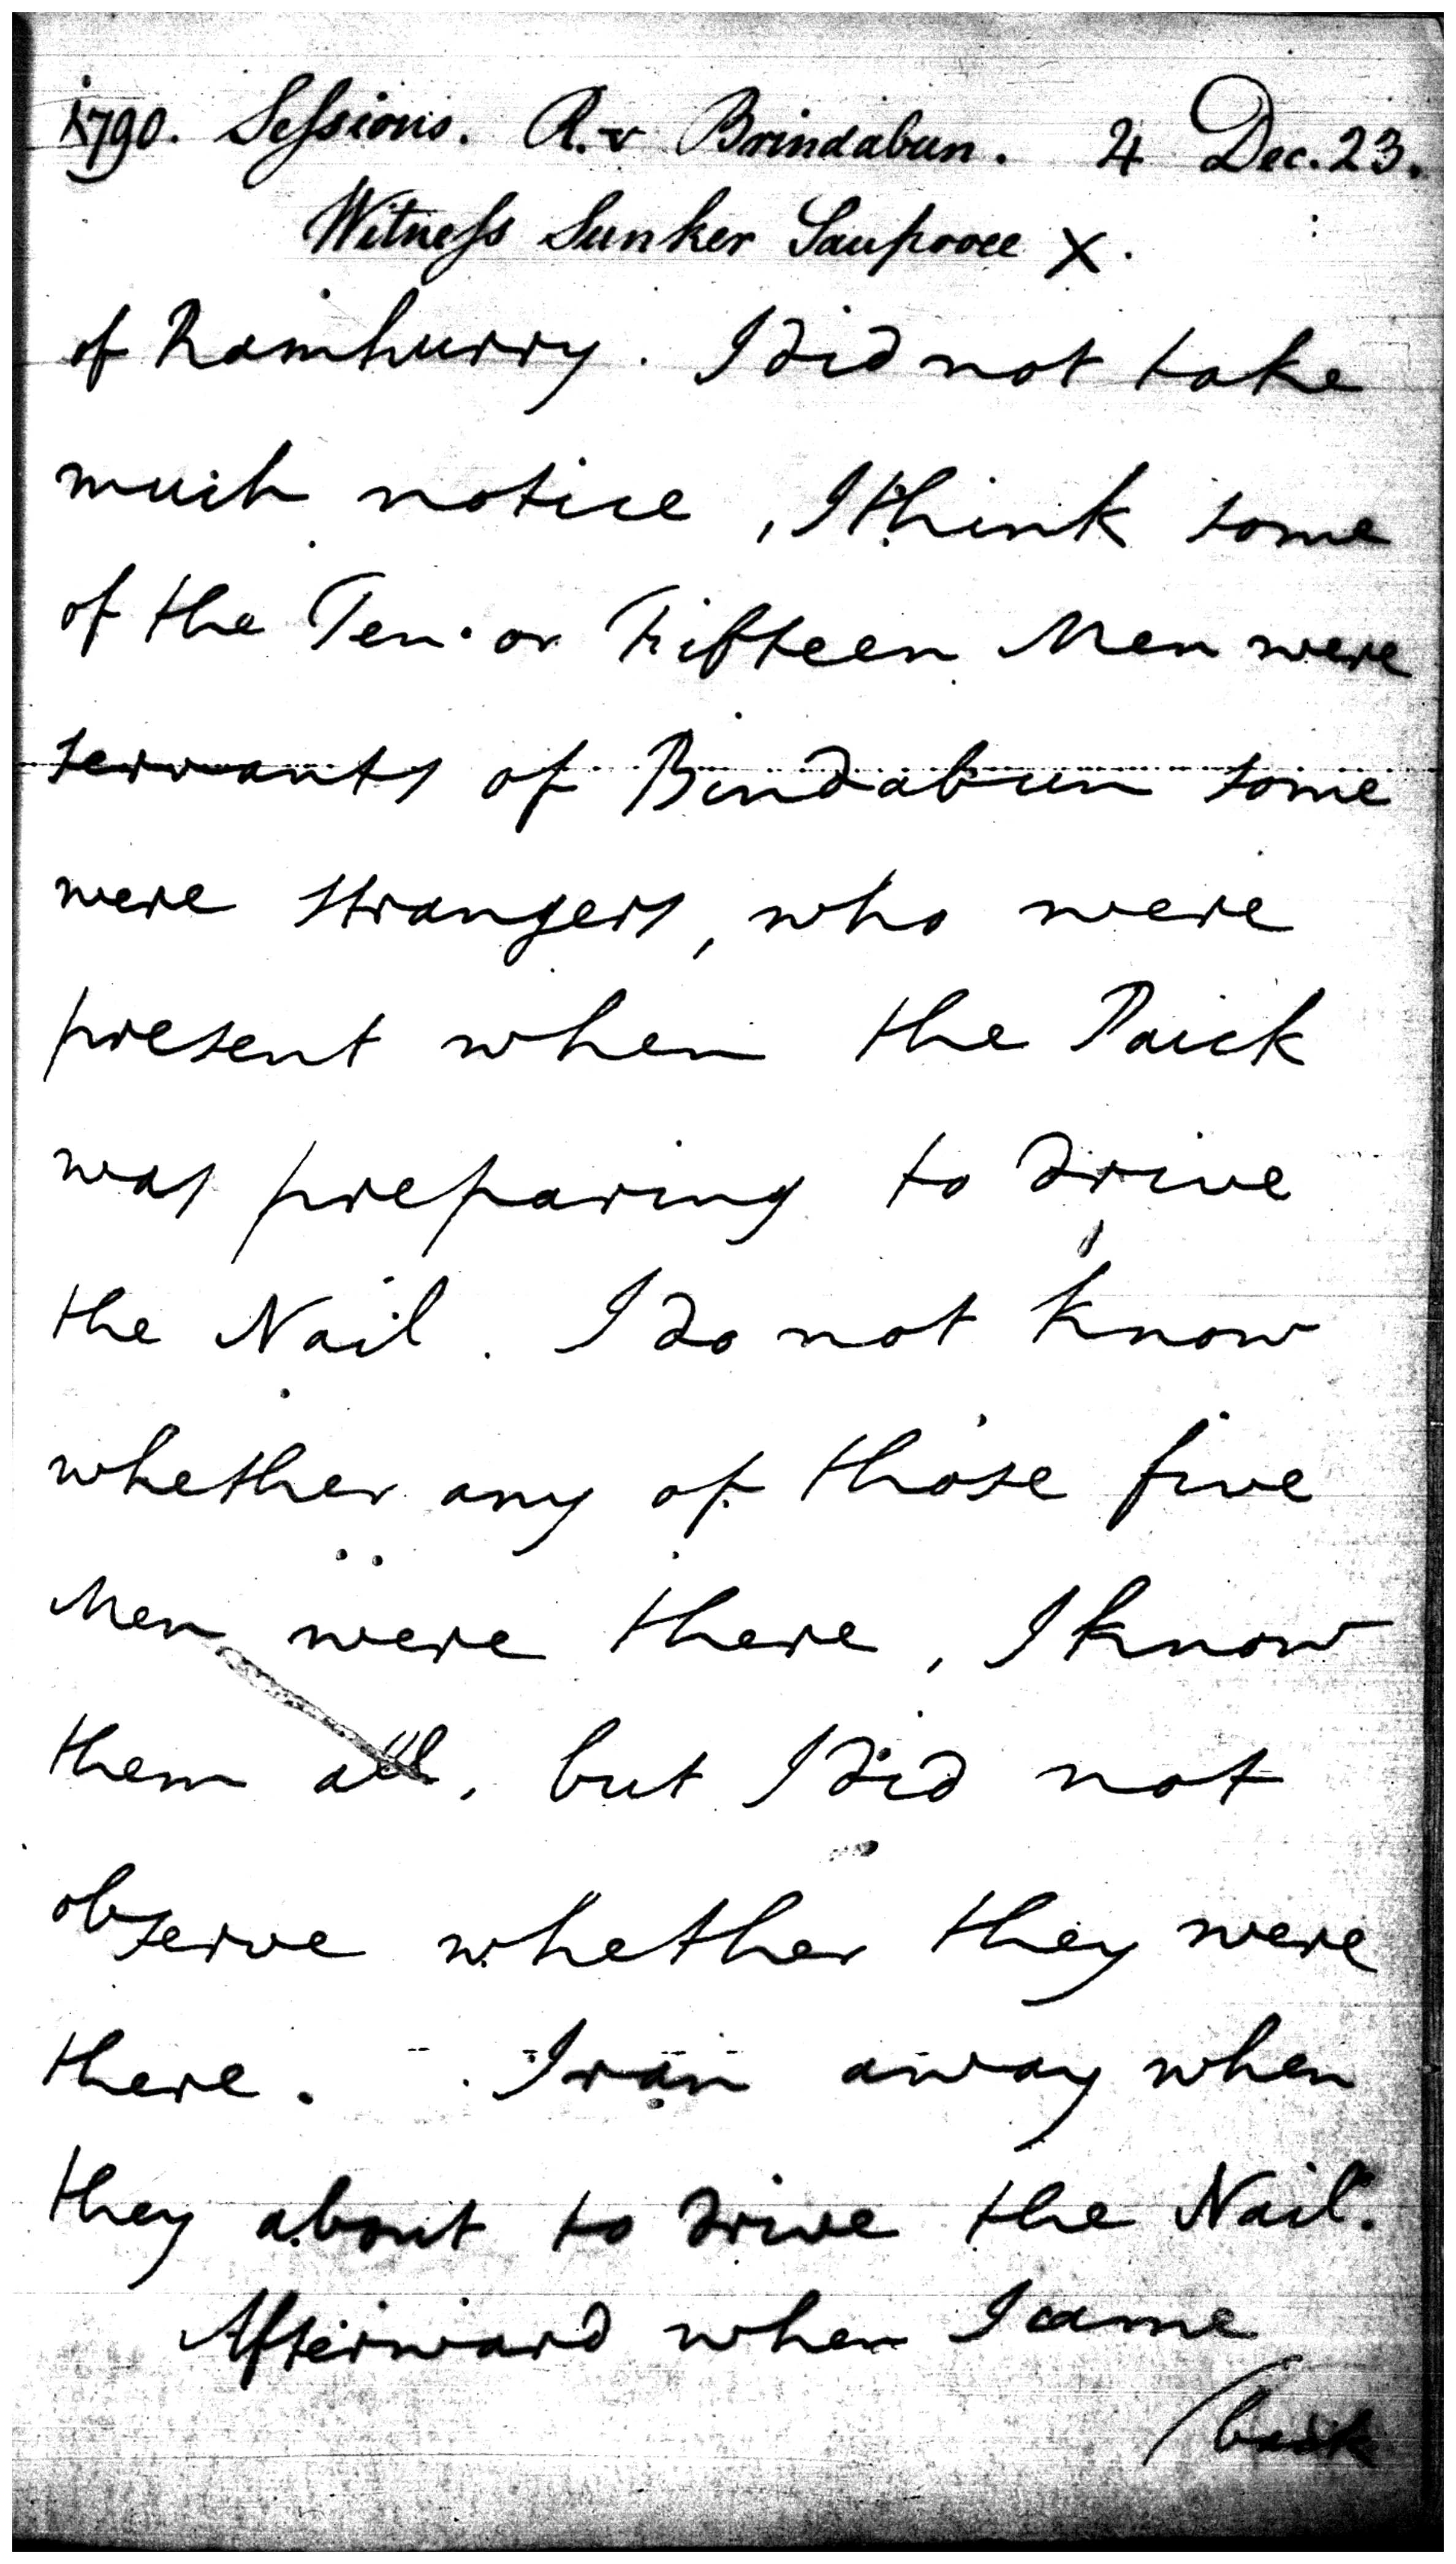 1790. Sessions. R. v Brindabun. 4 Dec. 23.
Witness Sunker Sauporee X.
of Ramhurry. I did not take
much notice, I think some
of the Ten or Fifteen Men were
servants of Bindabun some
were strangers, who were
present when the Paick
was preparing to drive
the Nail. I do not know
whether any of those five
Men were there, I know
them all, but I did not
observe whether they were
there. I ran away when
they about to drive the Nail.
Afterward when I came
/back